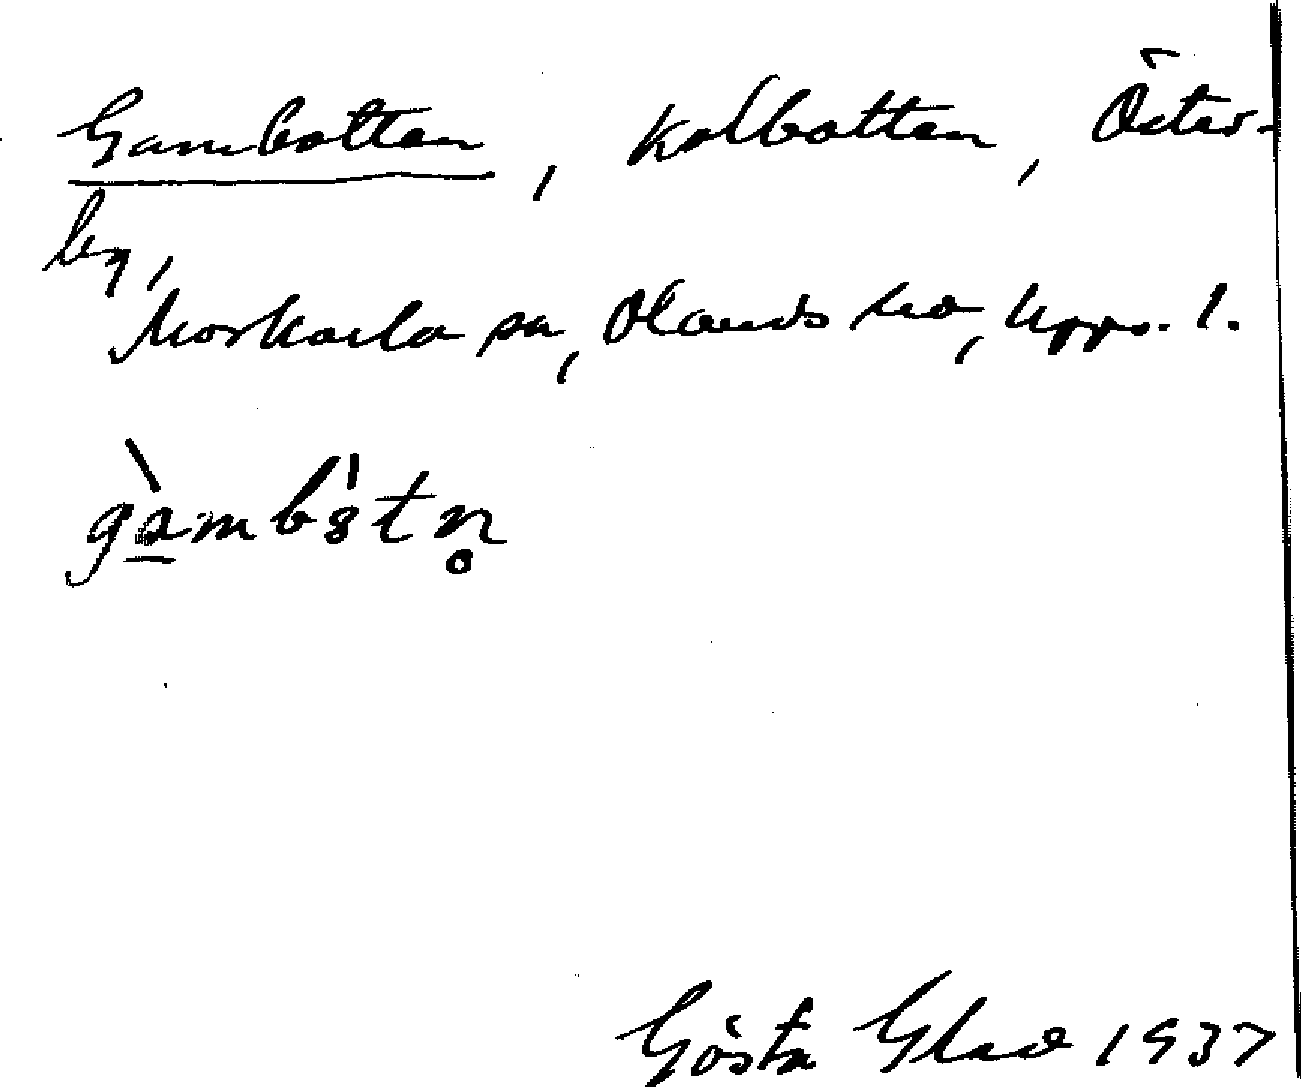 Gambotten, kolbotten, Öster-
by,
Morkarla sn, Olands hd, Upps. l.
gàmbòtn̥
Gösta Glad 1937